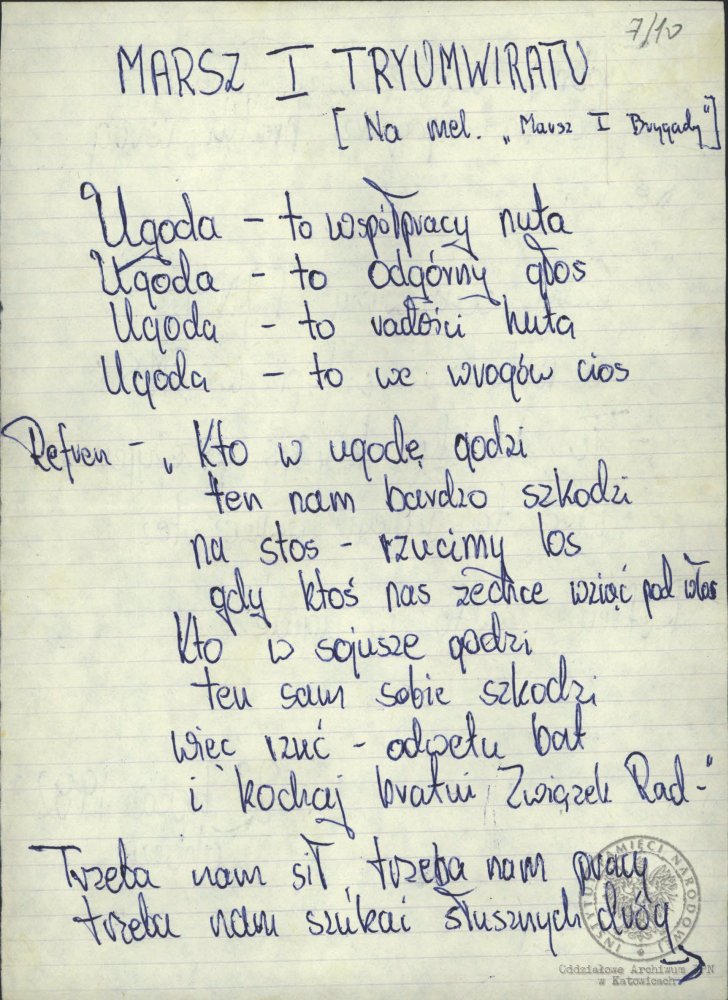 7/10
MARSZ I TRYUMWIRATU
[Na mel. „Marsz I Brygady"]
Ugoda - to współpracy nuta
Ugoda - to odgórny głos
Ugoda - to radości huta
Ugoda - to we wrogów cios
Refren - „Kto w ugodę godzi
ten nam bardzo szkodzi
na stos - rzucimy los
gdy ktoś nas zechce wziąć pod włos
Kto w sojusze godzi
ten sam sobie szkodzi
więc rzuć - odwetu bat
i kochaj bratni Związek Rad-"
Trzeba nam sił, trzeba nam pracy
trzeba nam szukać słusznych dróg
INSTYTUT PAMIĘCI NARODOWEJ
Oddziałowe Archiwum IPN
w Katowicach